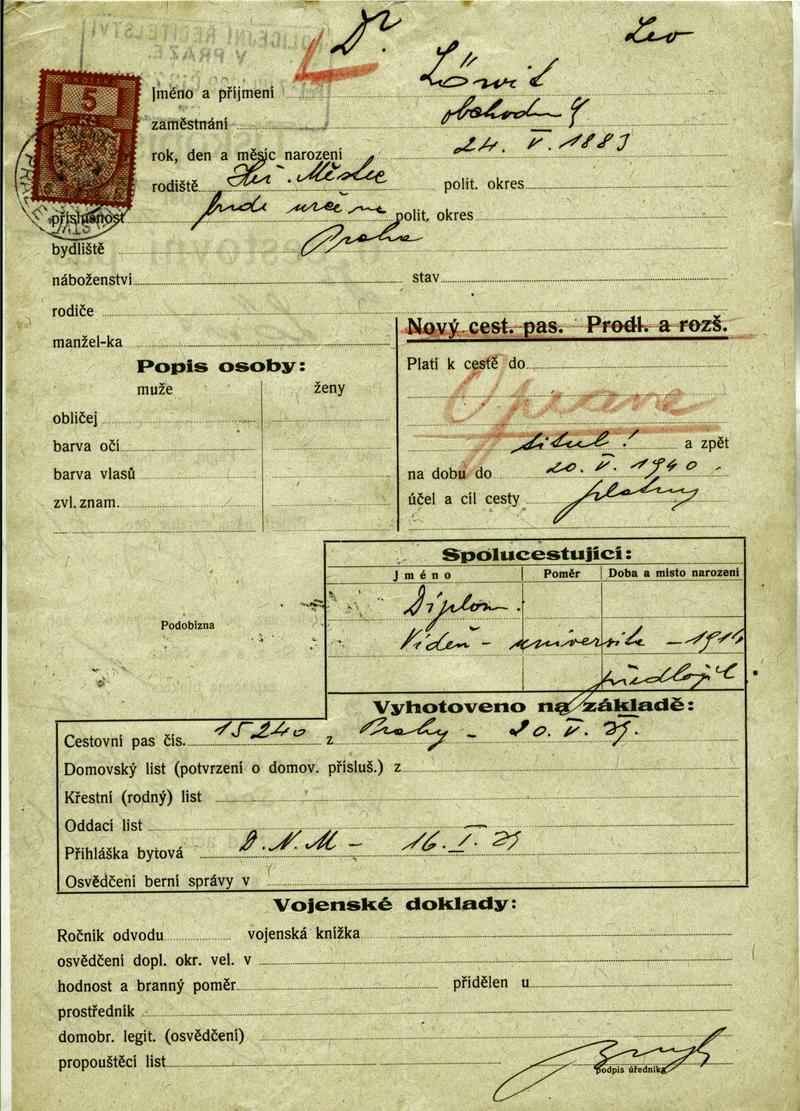 Dr. Leo
Löwit
POLICEJNÍ ŘEDITELSTVÍ
V PRAZE.
5
Jméno a příjmení
zaměstnání obchodn
rok, den a měsíc narození 24. V. 1883
rodiště Heř. Městec polit. okres
příslušnost bude určena polit. okres
bydliště Praha
náboženství stav
rodiče
manžel-ka
Nový cest. pas. Prodl. a rozš.
Popis osoby:
muže ženy
Platí k cestě do
Oprava
obličej
barva očí titul! a zpět
barva vlasů na dobu do 20. V. 1940.
zvl. znam. účel a cíl cesty platný
Spolucestující:
Jméno Poměr Doba a místo narození
Diplom:
Podobizna
Vídeň - universita - 1914
předložil
Vyhotoveno na základě:
Cestovní pas čís. 15240 z Prahy - 20. V. 39.
Domovský list (potvrzení o domov. přísluš.) z
Křestní (rodný) list
Oddací list
Přihláška bytová D. N. M - 16. I. 39
Osvědčení berní správy v
Vojenské doklady:
Ročník odvodu vojenská knížka
osvědčení dopl. okr. vel. v
hodnost a branný poměr přidělen u
prostředník
domobr. legit. (osvědčení)
propouštěcí list
podpis úředníka